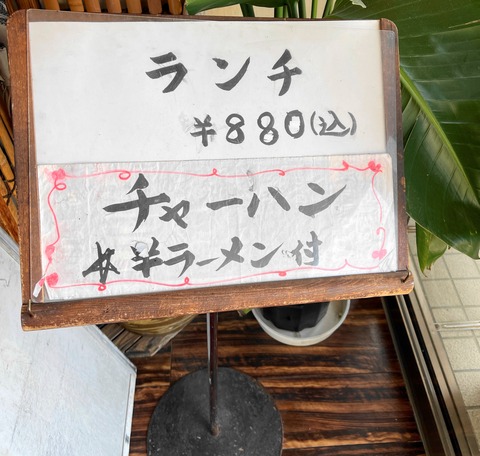 ランチ
¥880(込)
チャーハン
半ラーメン付